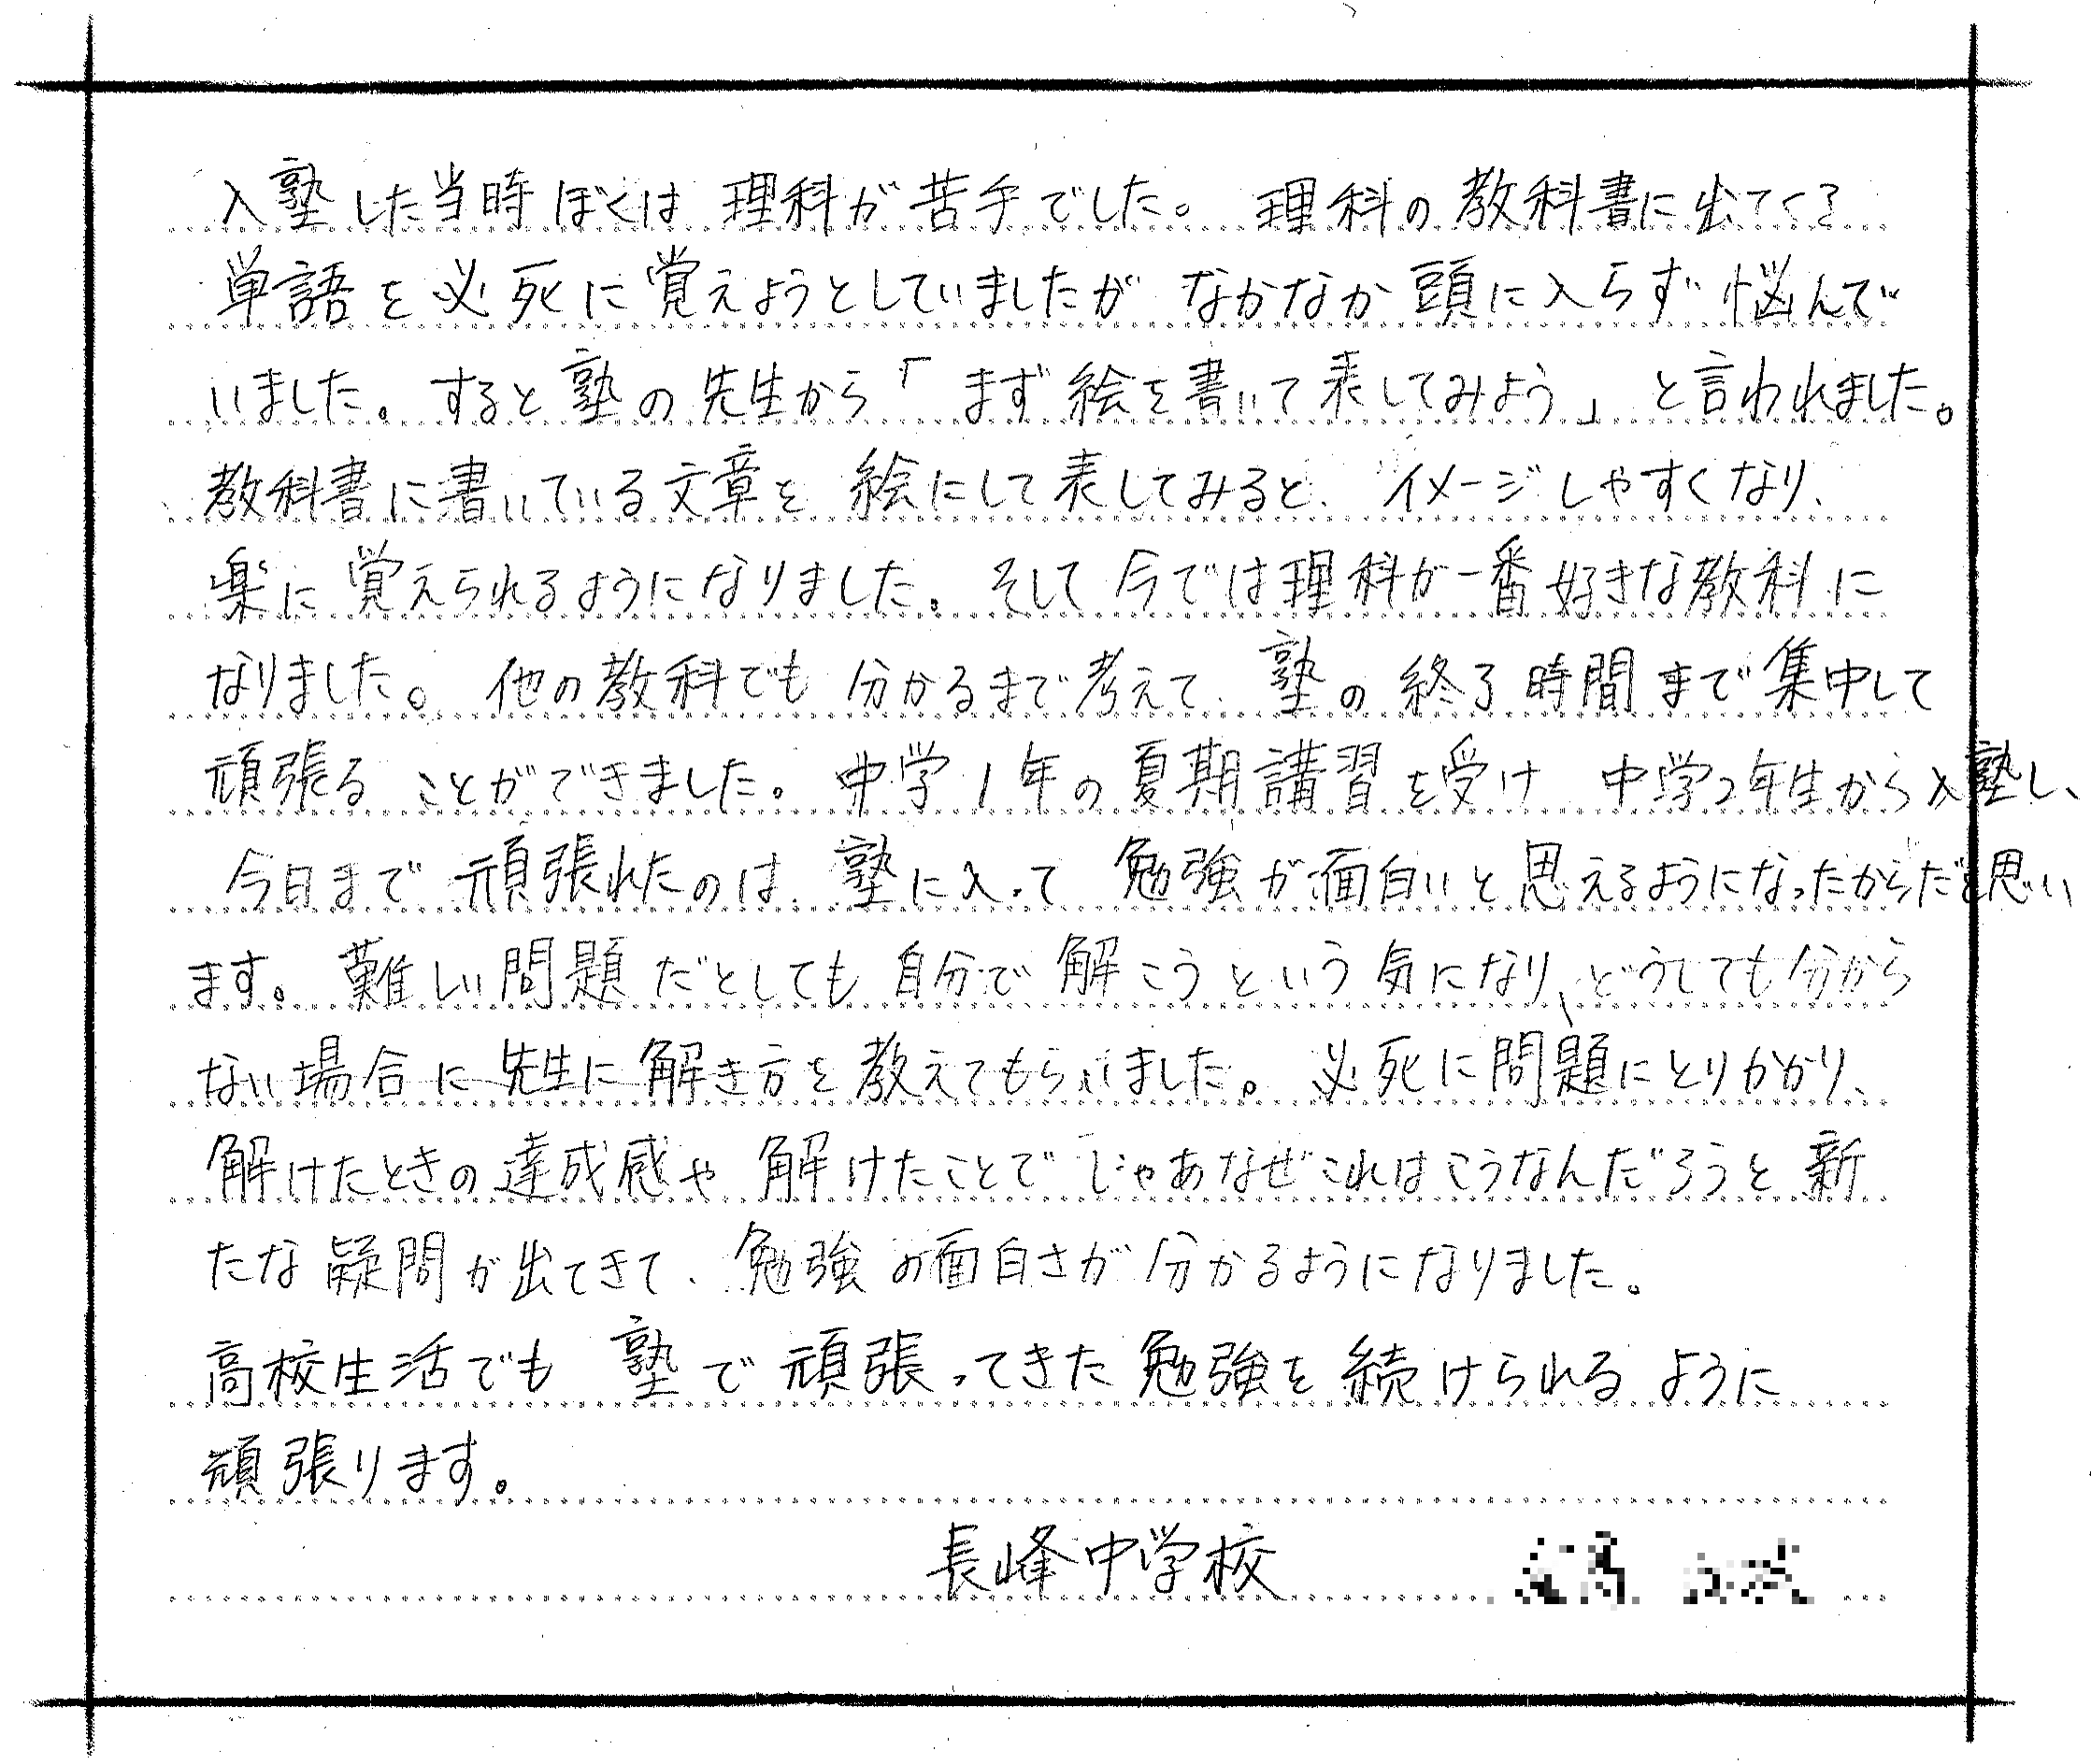 入塾した当時ぼくは理科が苦手でした。理科の教科書に出てくる
単語を必死に覚えようとしていましたがなかなか頭に入らず悩んで
いました。すると塾の先生から「まず絵を書いて表してみよう」と言われました。
教科書に書いている文章を絵にして表してみると、イメージしやすくなり、
楽に覚えられるようになりました。そして今では理科が一番好きな教科に
なりました。他の教科でも分かるまで考えて、塾の終了時間まで集中して
頑張ることができました。中学1年の夏期講習を受け中学2年生から入塾し、
今日まで頑張れたのは、塾に入って勉強が面白いと思えるようになったからだと思い
ます。難しい問題だとしても自分で解こうという気になり、どうしても分から
ない場合に先生に解き方を教えてもらいました。必死に問題にとりかかり、
解けたときの達成感や解けたことでじゃあなぜこれはこうなんだろうと新
たな疑問が出てきて、勉強の面白さが分かるようになりました。
高校生活でも塾で頑張ってきた勉強を続けられるように
頑張ります。
長峰中学校